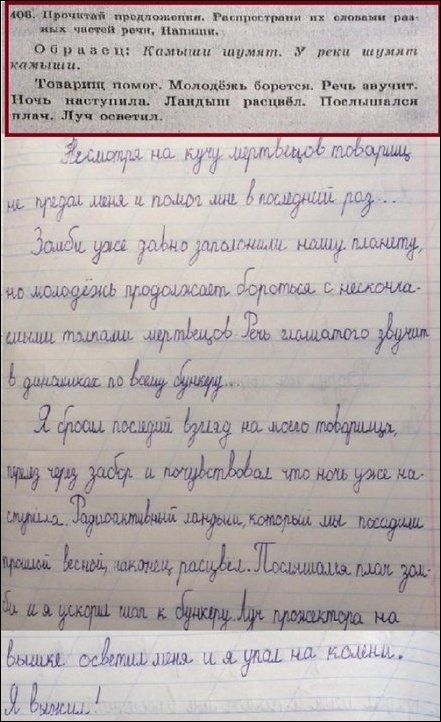 406. Прочитай предложения. Распространи их словами раз-
ных частей речи. Напиши.
Образец: Камыши шумят. У реки шумят
камыши.
Товарищ помог. Молодёжь борется. Речь звучит.
Ночь наступила. Ландыш расцвёл. Послышался
плач. Луч осветил.
Несмотря на кучу мертвецов товарищ
не предал меня и помог мне в последний раз...
Зомби уже давно заполонили нашу планету,
но молодёжь продолжает бороться с нескончае-
мыми толпами мертвецов. Речь глашатого звучит
в динамиках по всему бункеру...
Я бросил последий взгляд на моего товарища,
перелез через забор и почувствовал что ночь уже на-
ступила. Радиоактивный ландыш, который мы посадили
прошлой весной, наконец расцвёл. Послышался плач зом-
би и я ускорил шаг к бункеру. Луч прожектора на
вышке осветил меня и я упал на колени.
Я выжил!